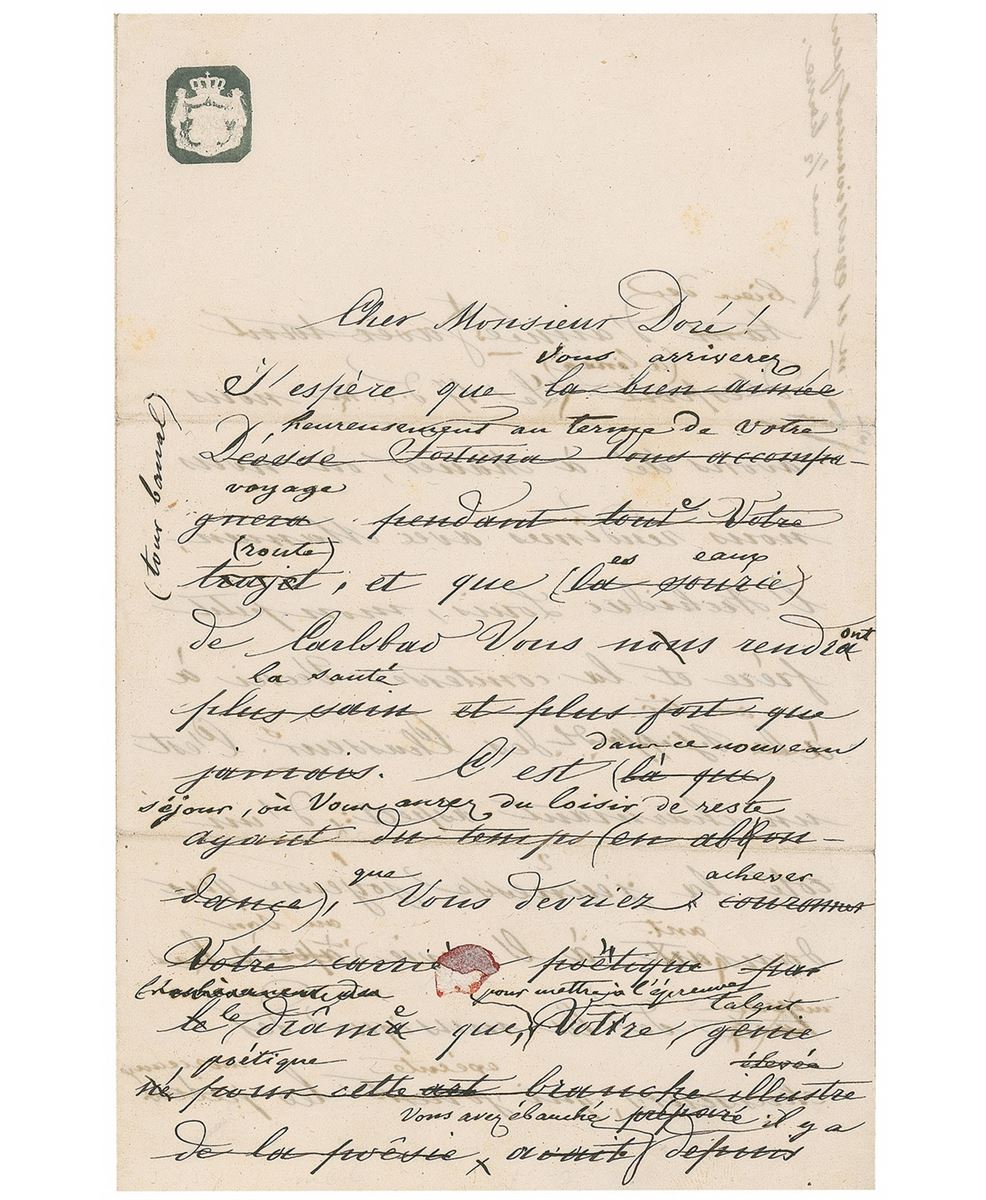 Cher Monsieur Doré!
Vous arriverez
J'espère que la bien aimée
heureusement au terme de votre
Déesse Fortuna Vous accompa-
voyage
gnera pendant toute Votre
(route)
trajet, et que (la sourie)
es eaux
de Carlsbad Vous nous rendra
ont
la santé
plus sain et plus fort que
dans ce nouveau
jamais. C'est (là que,
séjour, où Vous aurez du loisir de reste
ayant du temps (en abbon-
que achever
dance), Vous devriez couronner
Votre poëtique par
pour mettre à l'épreuve
talent
le drâme que, Votre génie
poétique élevée
né pour cette art branche illustre
Vous avez ébauché préparé il y a
de la poësie x avait depuis
(tour banal)